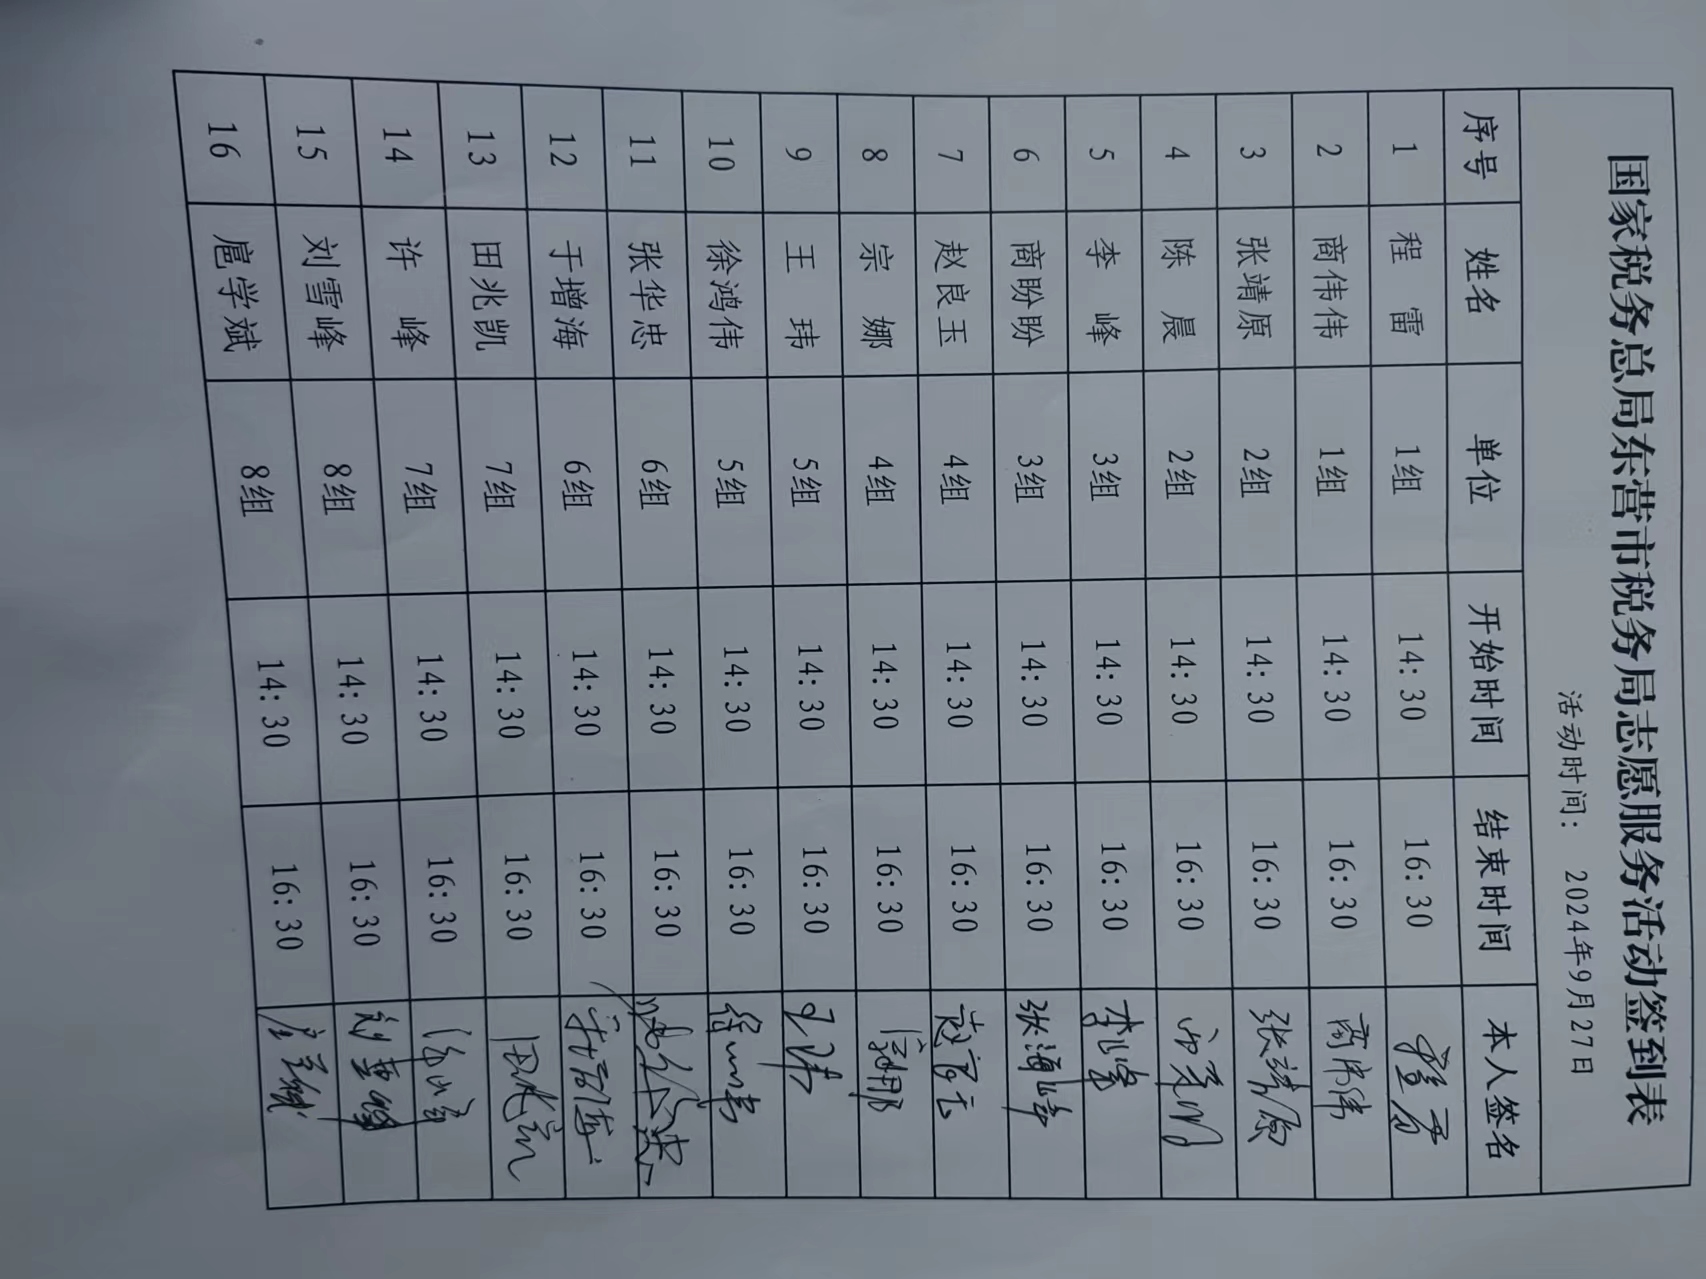 国家税务总局东营市税务局志愿服务活动签到表
活动时间: 2024年9月27日
序号 姓名 单位 开始时间 结束时间 本人签名
1 程 雷 1组 14:30 16:30
2 商伟伟 1组 14:30 16:30 商伟伟
3 张靖原 2组 14:30 16:30 张靖原
4 陈 晨 2组 14:30 16:30
5 李 峰 3组 14:30 16:30 李峰
6 商盼盼 3组 14:30 16:30 张海峰
7 赵良玉 4组 14:30 16:30
8 宗 娜 4组 14:30 16:30
9 王 玮 5组 14:30 16:30 王玮
10 徐鸿伟 5组 14:30 16:30
11 张华忠 6组 14:30 16:30
12 于增海 6组 14:30 16:30
13 田兆凯 7组 14:30 16:30
14 许 峰 7组 14:30 16:30
15 刘雪峰 8组 14:30 16:30 刘雪峰
16 扈学斌 8组 14:30 16:30